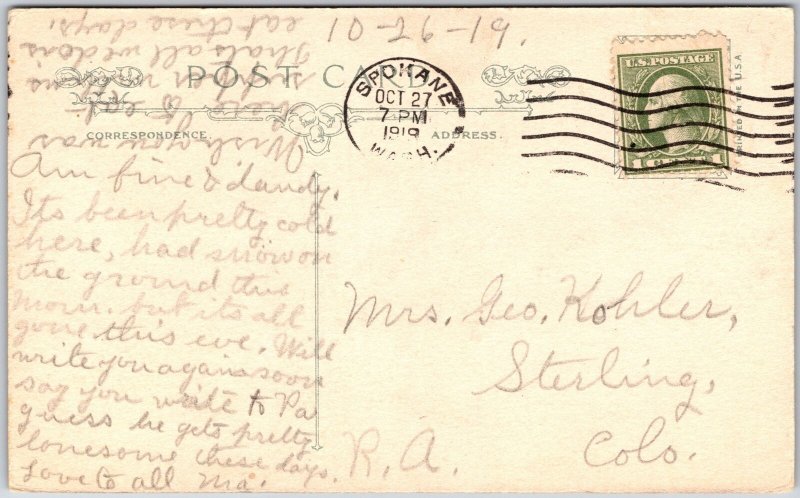 10-26-19.
POST CARD
CORRESPONDENCE
ADDRESS.
SPOKANE
OCT 27
7 PM
1919
WASH.
U.S. POSTAGE
1 CENT 1
Am fine & dandy.
Its been pretty cold
here, had snow on
the ground this
morn. but its all
gone this eve. Will
write you again soon
say you write to Pa
guess he gets pretty
lonesome these days.
Love to all Ma.
Wish you was
here to eat
supper with us
Thats all we do is
eat these days.
Mrs. Geo. Kohler,
Sterling,
Colo.
R.A.